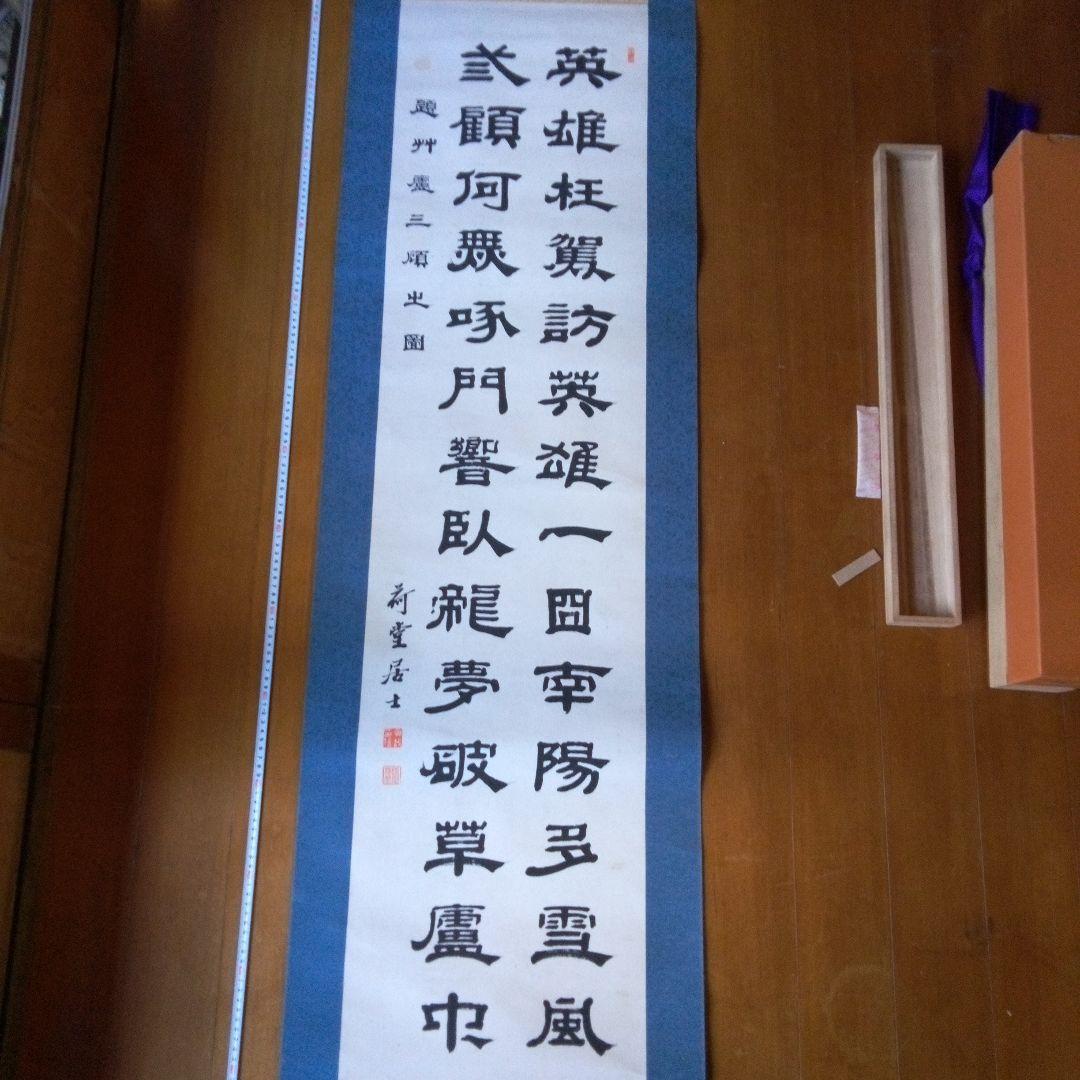 英雄枉駕訪英雄一南陽多雪風
弎顧何無啄門響臥龍夢破草廬中
題艸廬三顧之圖
荷堂居士